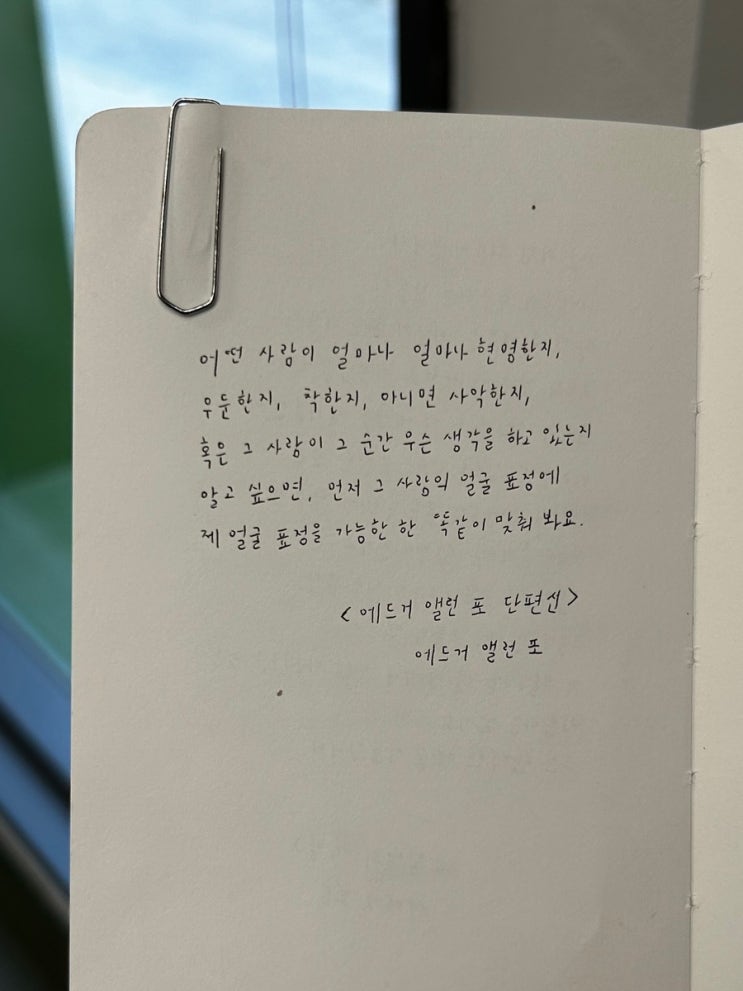 어떤 사람이 얼마나 얼마나 현명한지,
우둔한지, 착한지, 아니면 사악한지,
혹은 그 사람이 그 순간 무슨 생각을 하고 있는지
알고 싶으면, 먼저 그 사람의 얼굴 표정에
제 얼굴 표정을 가능한 한 똑같이 맞춰 봐요.
<에드거 앨런 포 단편선>
에드거 앨런 포